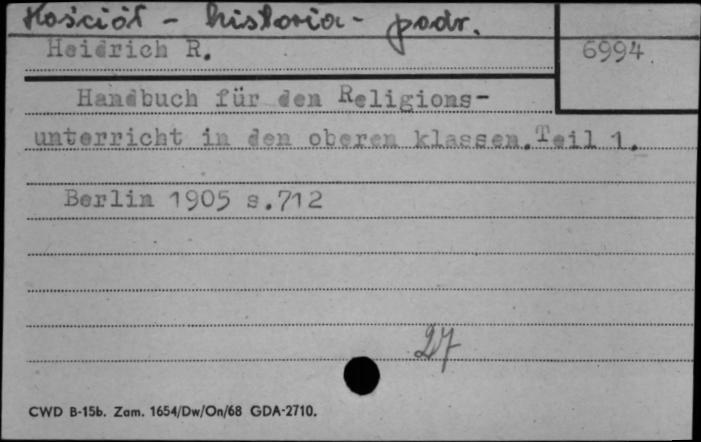 Kościół - historia - podr.
Heidrich R.
6994
Handbuch für den Religions-
unterricht in den oberen klassen.Teil 1.
Berlin 1905 s.712
27
CWD B-15b. Zam. 1654/Dw/On/68 GDA-2710.